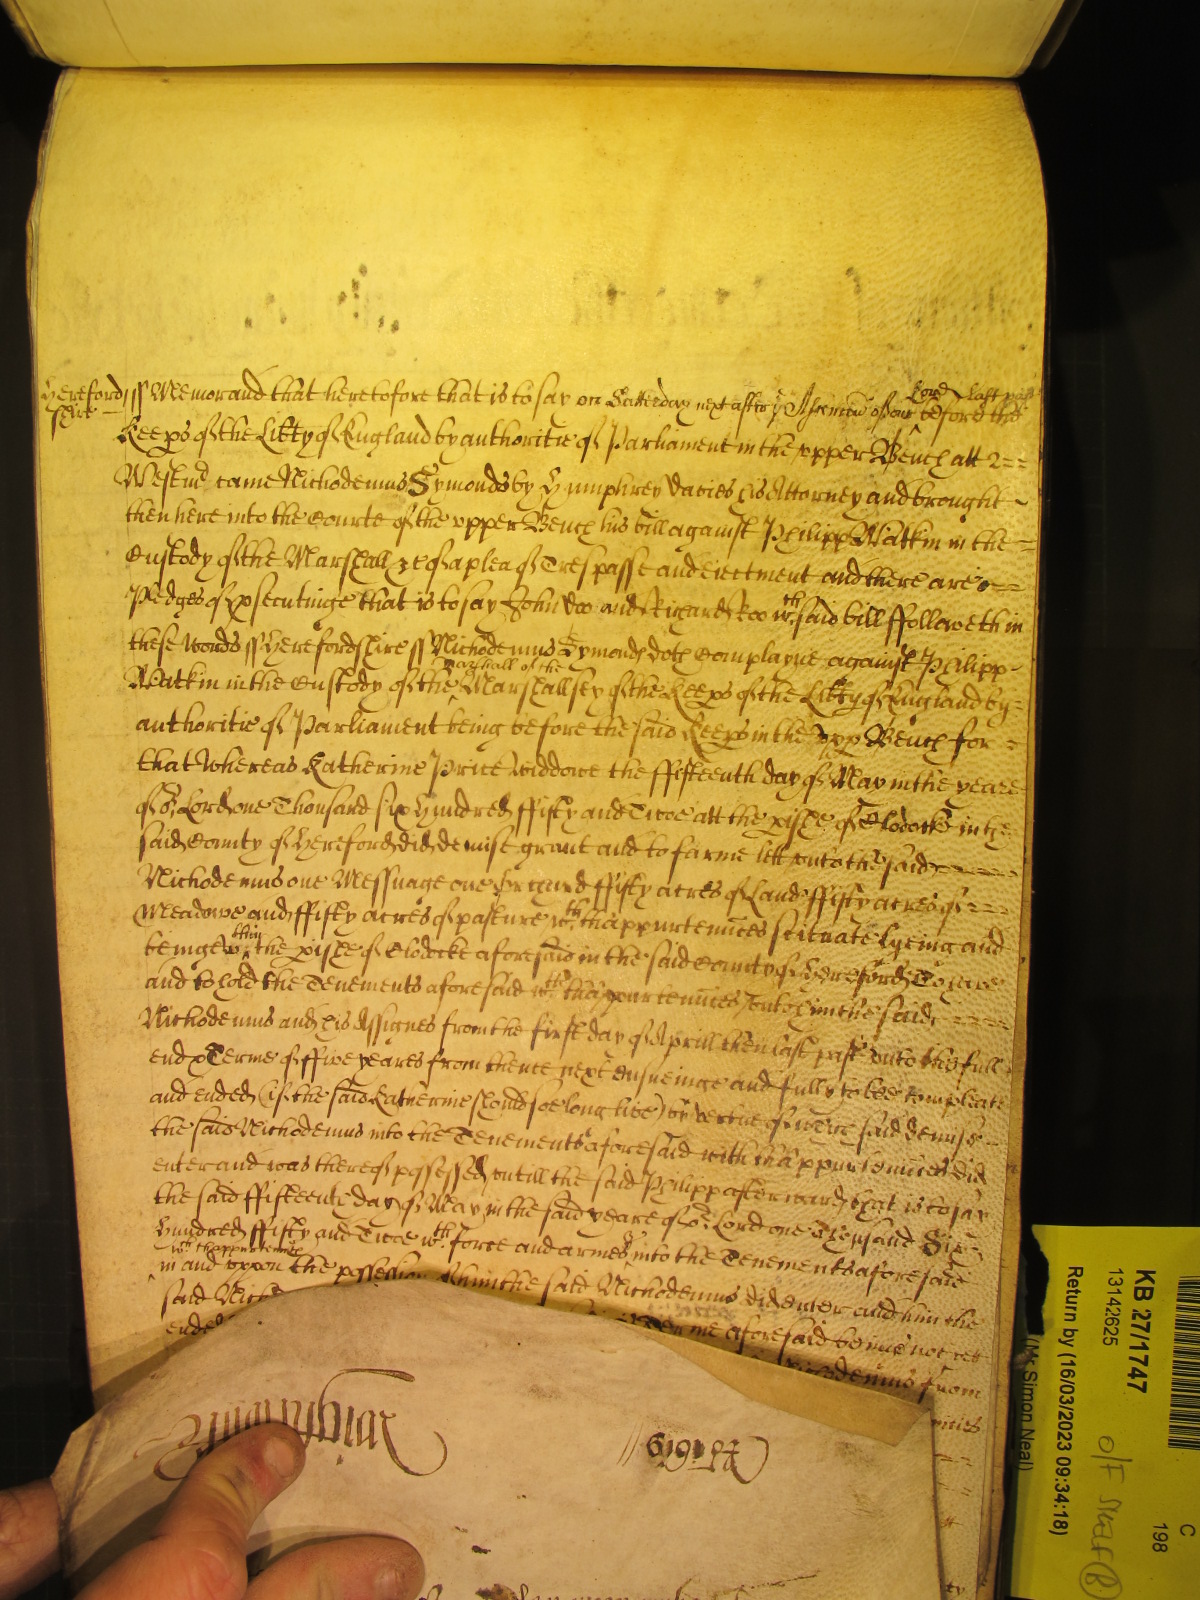 Hereford ss Memorand that heretofore that is to say on Satterday next after ye Ascencion of our Lord last past before the
shire
Keeps of the Libty of England by authoritie of Parliament in the vpper Bench att
Westmr came Nichodemus Symonds by Humphrey Davies his Attorney and brought
then here into the Courte of the vpper Bench his bill against Philipp Watkin in the
Custody of the Marshall &c of a plea of Trespasse and eiectment and there are
Pledges of psecutinge that is to say John Doo and Richard Roo wch said bill ffolloweth in
these words ss Herefordshire ss Nichodemus Symonds doth Complayne against Philipp
Watkin in the Custody of the Marshall of the Marshallsey of the Keeps of the Libty of England by
authoritie of Parliament being before the said Keeps in the vpp Bench for
that whereas Katherine Price widdowe the ffifteenth day of May in the yeare
of or Lord one Thousand six hundred ffifty and Twoe att the pishe of Clodocke in the
said County of Hereford did demise grant and to farme lett vnto the said
Nichodemus one Messuage one Orchard ffifty acres of Land ffifty acres of
Meadowe and ffifty acres of pasture wth thappurtenncs scituate lyeing and
beinge wthin the pishe of Clodocke aforesaid in the said County of Hereford To have
and to hold the Tenements aforesaid wth thappurtenncs vnto him the said
Nichodemus and his Assignes from the first day of Aprill then last past vnto the full
end & Terme of ffive yeares from thence next ensueinge and fully to bee compleate
and ended (if the said Katherine should soe long live) by vertue of wch said demise
the said Nichodemus into the Tenements aforesaid with thappurtenncs did
enter and was thereof possessed vntill the said Philipp afterwards that is to say
the said ffifteenth day of May in the said yeare of or Lord one Thousand Six
hundred ffifty and Twoe wth force and armes into the Tenements aforesaid
wth thappurtenncs
in and vppon the possession of him the said Nichodemus did enter and him the
said Nich
ende me aforesaid being not yett
Nichodemus from
KB 27/1747
13142625
Return by (16/03/2023 09:34:18)
(Mr Simon Neal)
C
198
O/F